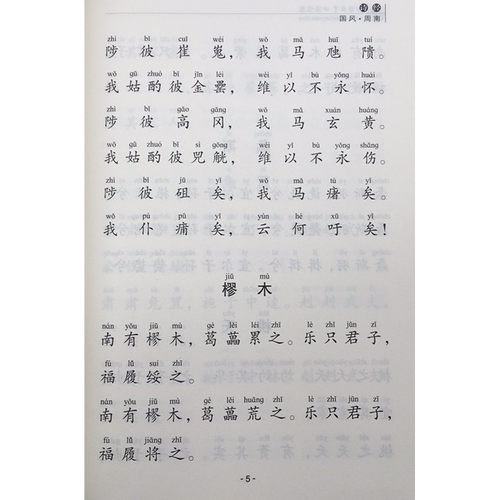 诗经
国风·周南
zhì bǐ cuī wéi wǒ mǎ huī tuí
陟彼崔嵬，我马虺隤。
wǒ gū zhuó bǐ jīn léi wéi yǐ bù yǒng huái
我姑酌彼金罍，维以不永怀。
zhì bǐ gāo gāng wǒ mǎ xuán huáng
陟彼高冈，我马玄黄。
wǒ gū zhuó bǐ sì gōng wéi yǐ bù yǒng shāng
我姑酌彼兕觥，维以不永伤。
zhì bǐ jū yǐ wǒ mǎ tú yǐ
陟彼砠矣，我马瘏矣。
wǒ pú pū yǐ yún hé xū yǐ
我仆痡矣，云何吁矣！
jiū mù
樛木
nán yǒu jiū mù gé lěi léi zhī lè zhǐ jūn zǐ
南有樛木，葛藟累之。乐只君子，
fú lǚ suí zhī
福履绥之。
nán yǒu jiū mù gé lěi huāng zhī lè zhǐ jūn zǐ
南有樛木，葛藟荒之。乐只君子，
fú lǚ jiāng zhī
福履将之。
- 5 -